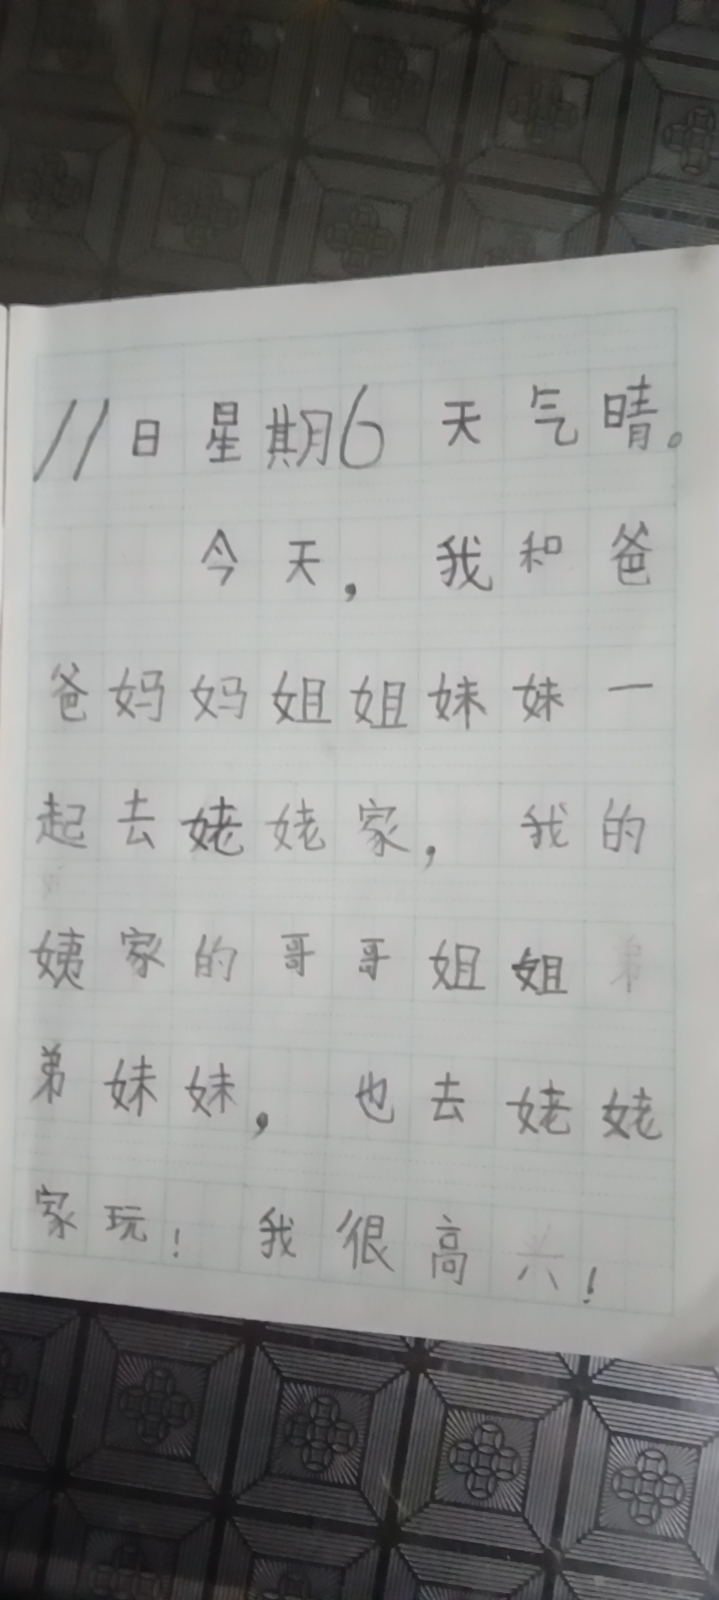 11日星期6 天气晴。
今天，我和爸
爸妈妈姐姐妹妹一
起去姥姥家，我的
姨家的哥哥姐姐弟
弟妹妹，也去姥姥
家玩！我很高兴！